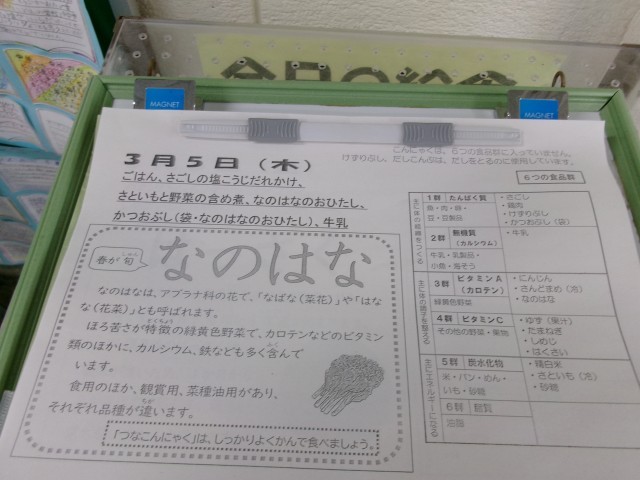 今日の給食
MAGNET
MAGNET
こんにゃくは、6つの食品群に入っていません。
けずりぶし、だしこんぶは、だしをとるのに使用しています。
3月5日（木）
ごはん、さごしの塩こうじだれかけ、
さといもと野菜の含め煮、なのはなのおひたし、
かつおぶし（袋・なのはなのおひたし）、牛乳
春が旬
なのはな
なのはなは、アブラナ科の花で、「なばな（菜花）」や「はな
な（花菜）」とも呼ばれます。
ほろ苦さが特徴の緑黄色野菜で、カロテンなどのビタミン
類のほかに、カルシウム、鉄なども多く含んで
います。
食用のほか、観賞用、菜種油用があり、
それぞれ品種が違います。
「つなこんにゃく」は、しっかりよくかんで食べましょう。
6つの食品群
主に体の組織をつくる
1群 たんぱく質
魚・肉・卵・
豆・豆製品
・さごし
・鶏肉
・けずりぶし
・かつおぶし（袋）
2群 無機質
（カルシウム）
牛乳・乳製品・
小魚・海そう
・牛乳
主に体の調子を整える
3群 ビタミンA
（カロテン）
緑黄色野菜
・にんじん
・さんどまめ（冷）
・なのはな
4群 ビタミンC
その他の野菜・果物
・ゆず（果汁）
・たまねぎ
・しめじ
・はくさい
主にエネルギーになる
5群 炭水化物
米・パン・めん・
いも・砂糖
・精白米
・さといも（冷）
・砂糖
6群 脂質
油脂